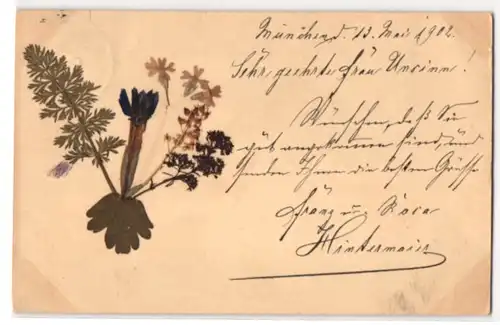 München d. 13. Mai 1902.
Sehr geehrte Frau
Wünschen, daß Sie
gut angekommen sind, und
senden Ihnen die besten Grüße
Franz u. Rosa
Hintermaier